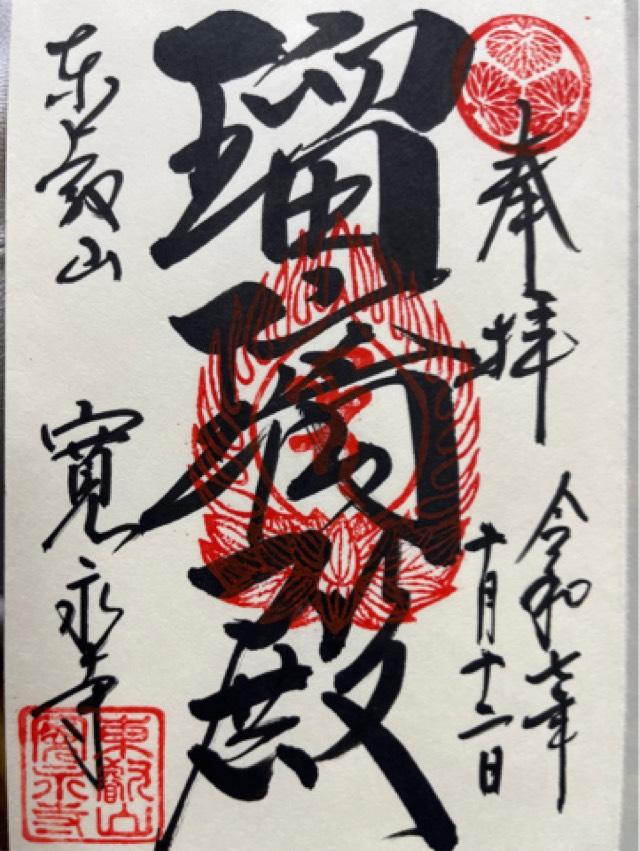 奉拝
令和七年
十月十二日
瑠璃殿
東叡山
寛永寺
東叡山
寛永寺